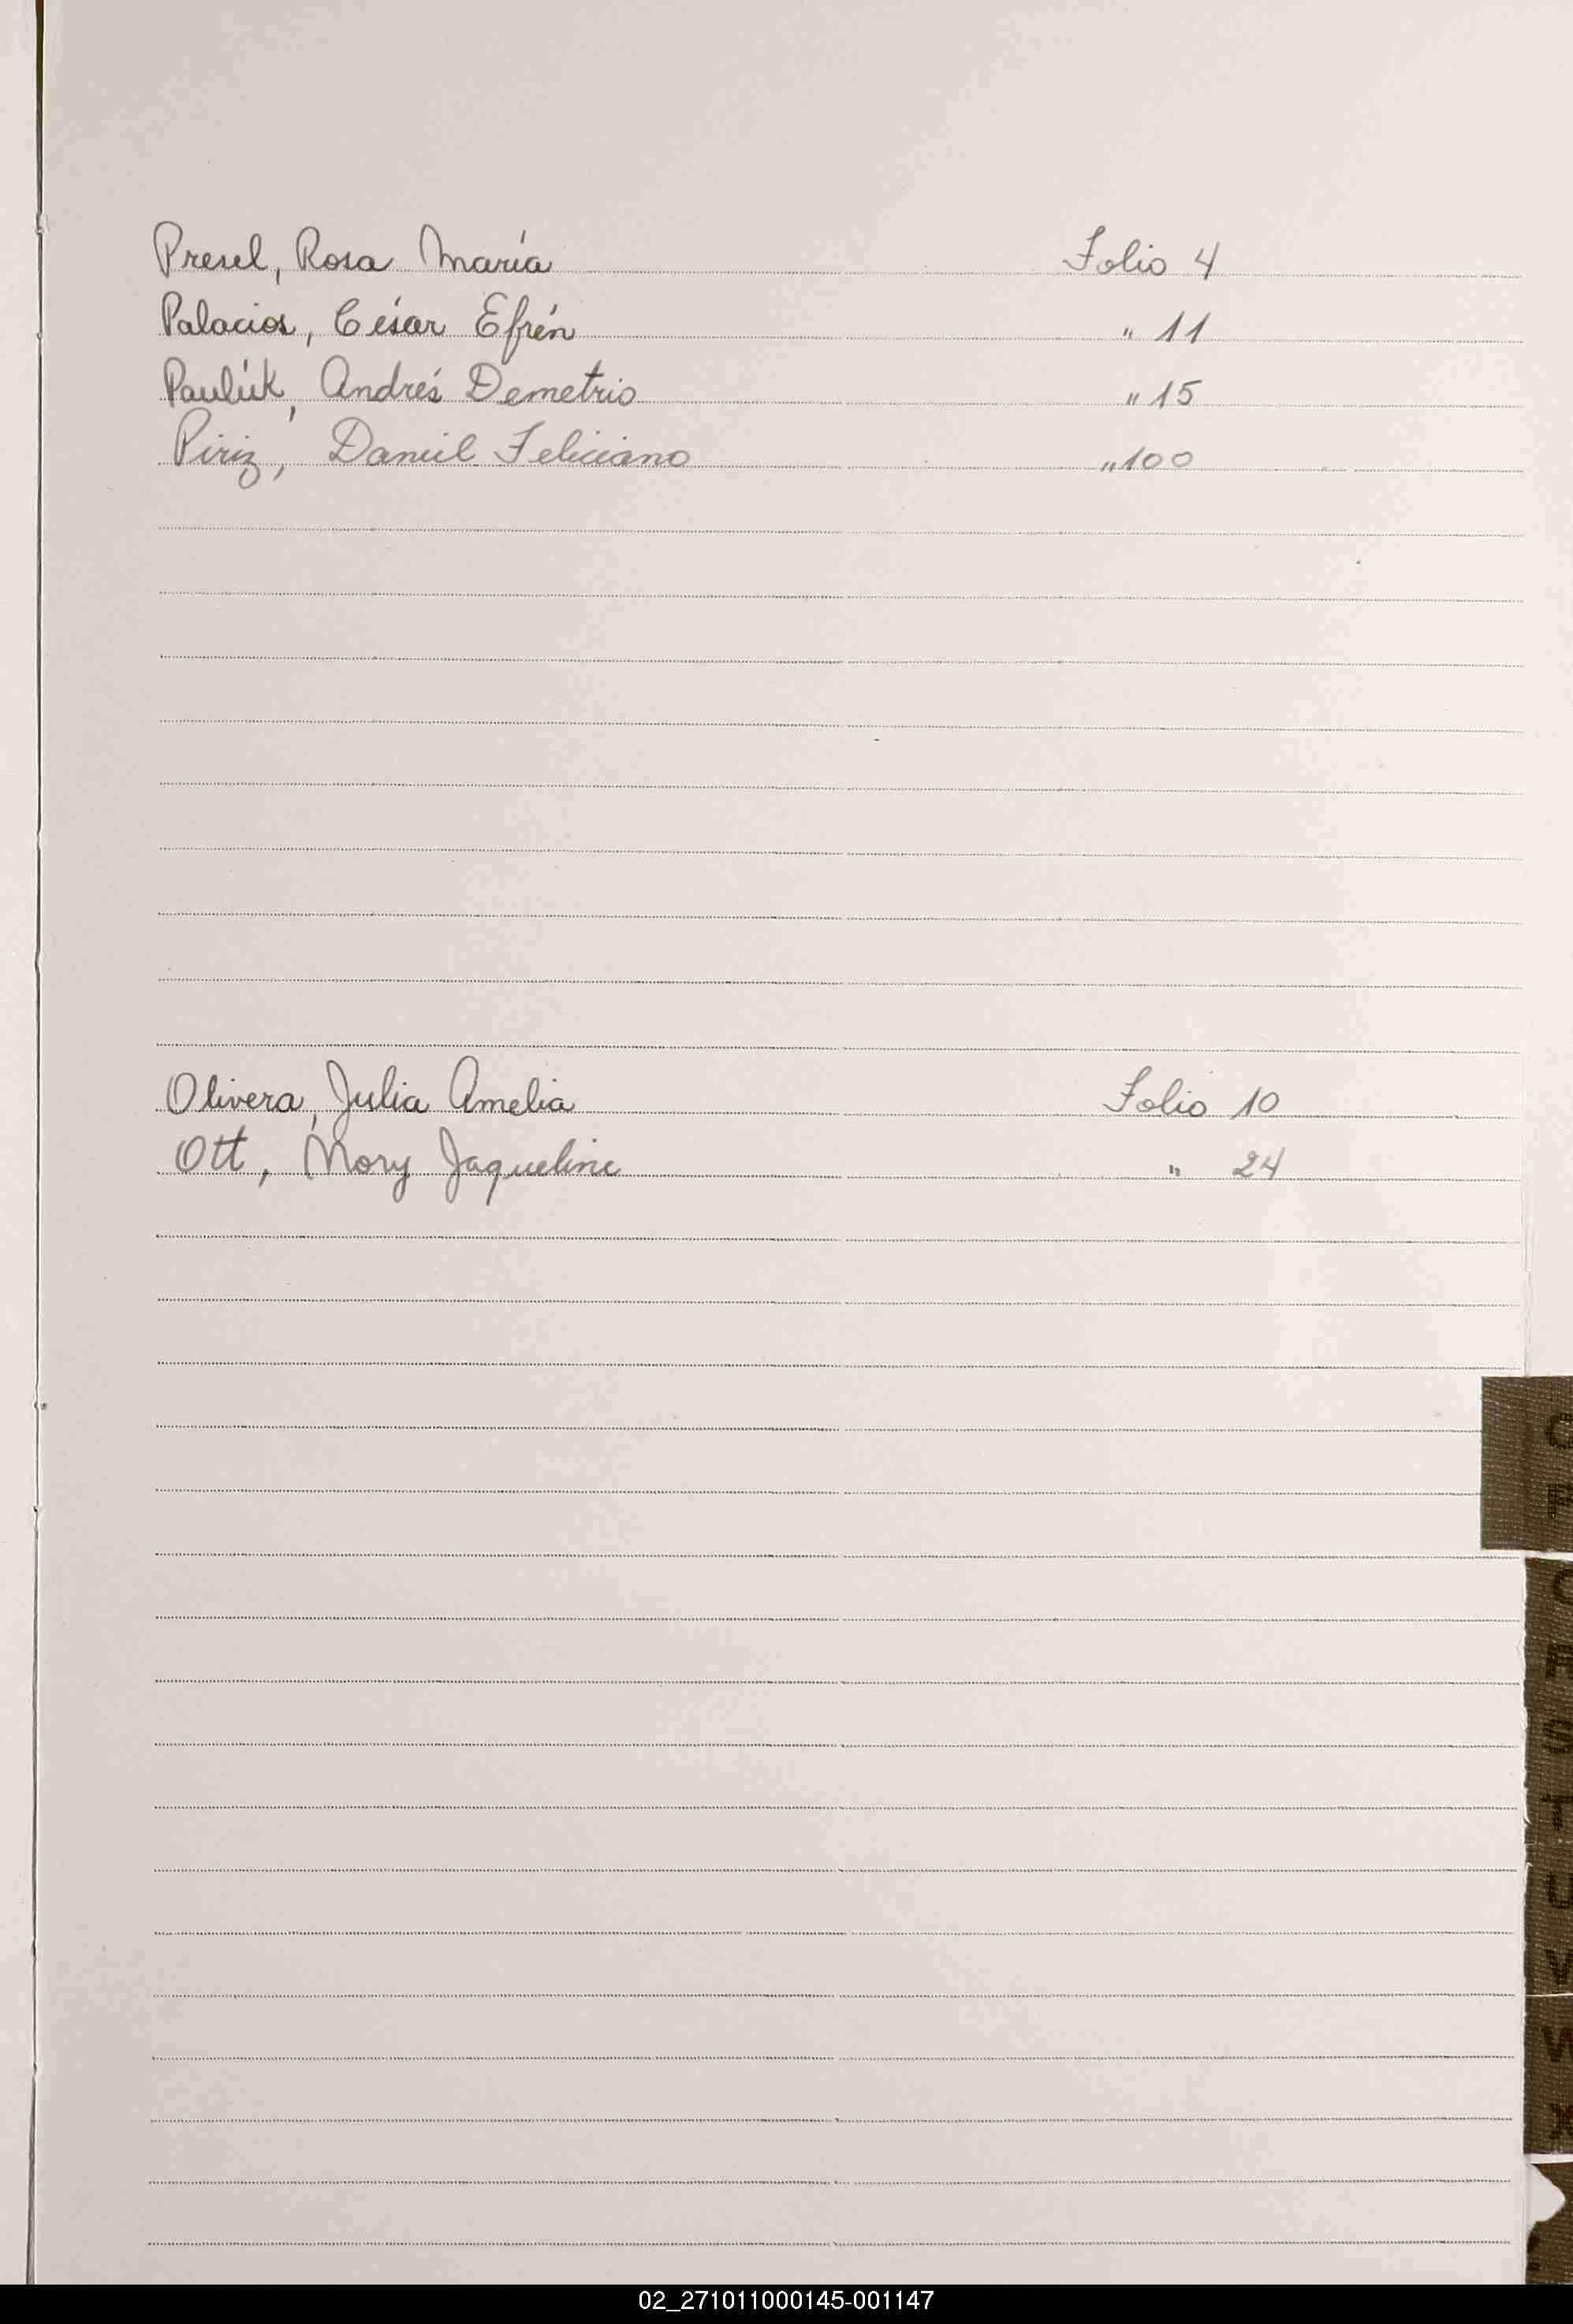 Presel, Rosa María Folio 4
Palacios, César Efrén " 11
Paulúk, Andrés Demetrio " 15
Piriz, Daniel Feliciano " 100
Olivera, Julia Amelia Folio 10
Ott, Mory Jaqueline " 24
O
P
Q
R
S
T
U
V
W
X
02_271011000145-001147